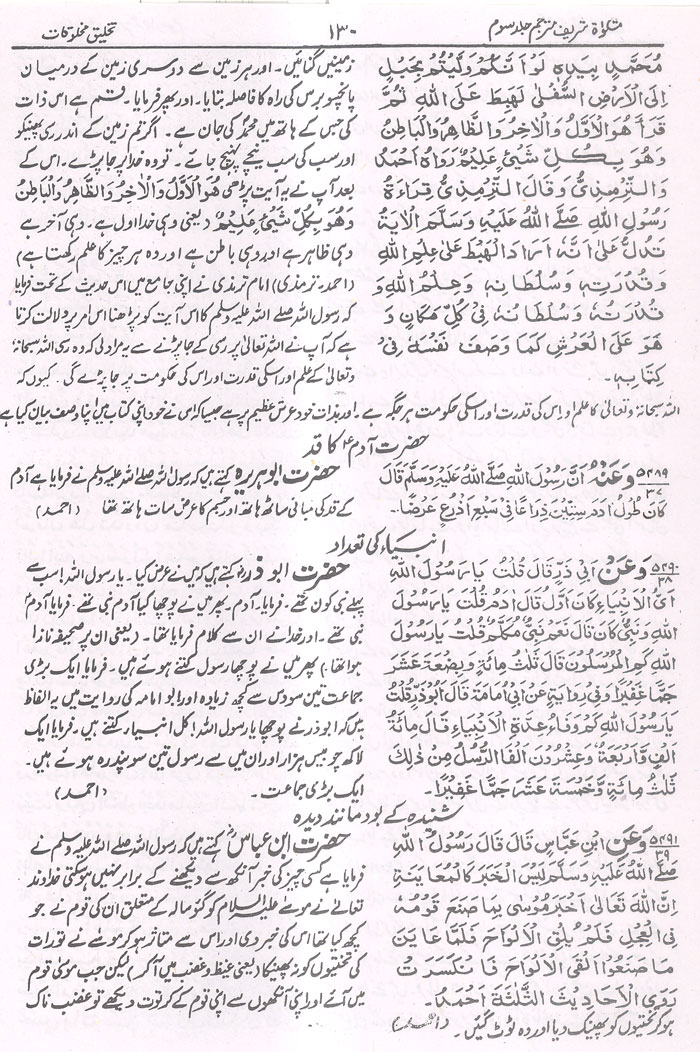 مشکوٰۃ شریف مترجم جلد سوم
۱۳۰
تخلیق مخلوقات
مُحَمَّدٍ بِيَدِهٖ لَوْ اَنَّكُمْ دَلَّيْتُمْ بِحَبْلٍ
اِلَى الْاَرْضِ السُّفْلٰى لَهَبَطَ عَلَى اللّٰهِ ثُمَّ
قَرَأَ هُوَ الْاَوَّلُ وَالْاٰخِرُ وَالظَّاهِرُ وَالْبَاطِنُ
وَهُوَ بِكُلِّ شَيْئٍ عَلِيْمٌ رَوَاهُ اَحْمَدُ
وَالتِّرْمِذِيُّ وَقَالَ التِّرْمِذِيُّ قِرَاءَةُ
رَسُوْلِ اللّٰهِ صَلَّى اللّٰهُ عَلَيْهِ وَسَلَّمَ الْاٰيَةَ
تَدُلُّ عَلٰى اَنَّهٗ اَرَادَ الْهَبَطَ عَلٰى عِلْمِ اللّٰهِ
وَقُدْرَتِهٖ وَسُلْطَانِهٖ وَعِلْمُ اللّٰهِ وَ
قُدْرَتُهٗ وَسُلْطَانُهٗ فِيْ كُلِّ مَكَانٍ وَ
هُوَ عَلَى الْعَرْشِ كَمَا وَصَفَ نَفْسَهٗ فِيْ
كِتَابِهٖ۔
زمینیں گنائیں۔ اور ہر زمین سے دوسری زمین کے درمیان
پانچسو برس کی راہ کا فاصلہ بتایا۔ اور پھر فرمایا۔ قسم ہے اس ذات
کی جس کے ہاتھ میں محمدؐ کی جان ہے۔ اگر تم زمین کے اندر رسی پھینکو
اور سب کی سب نیچے پہنچ جائے۔ تو وہ خدا پر جا پڑے۔ اس کے
بعد آپ نے یہ آیت پڑھی هُوَ الْاَوَّلُ وَالْاٰخِرُ وَالظَّاهِرُ وَالْبَاطِنُ
وَهُوَ بِكُلِّ شَيْئٍ عَلِيْمٌ (یعنی وہی خدا اول ہے۔ وہی آخر ہے
وہی ظاہر ہے اور وہی باطن ہے اور وہ ہر چیز کا علم رکھتا ہے)
(احمد۔ ترمذی) امام ترمذی نے اپنی جامع میں اس حدیث کے تحت فرمایا
کہ رسول اللہ صلے اللہ علیہ وسلم کا اس آیت کو پڑھنا اس امر پر دلالت کرتا
ہے کہ آپ نے اللہ تعالیٰ پر رسی کے جا پڑنے سے یہ مراد لی کہ وہ رسی اللہ سبحانہٗ
وتعالیٰ کے علم اور اسکی قدرت اور اس کی حکومت پر جا پڑے گی۔ کیوں کہ
اللہ سبحانہٗ وتعالیٰ کا علم و اس کی قدرت اور اسکی حکومت ہر جگہ ہے۔ اور بذات خود عرش عظیم پر ہے جیسا کہ اس نے خود اپنی کتاب میں اپنا وصف بیان کیا ہے
حضرت آدمؑ کا قد
۵۴۸۹
۳۷
وَعَنْهُ اَنَّ رَسُوْلَ اللّٰهِ صَلَّى اللّٰهُ عَلَيْهِ وَسَلَّمَ قَالَ
كَانَ طُوْلُ اٰدَمَ سِتِّيْنَ ذِرَاعًا فِيْ سَبْعِ اَذْرُعٍ عَرْضًا۔
حضرت ابوہریرہؓ کہتے ہیں کہ رسول اللہ صلے اللہ علیہ وسلم نے فرمایا ہے آدم
کے قد کی لمبائی ساٹھ ہاتھ اور جسم کا عرض سات ہاتھ تھا (احمد)
انبیاء کی تعداد
۵۴۹۰
۳۸
وَعَنْ اَبِيْ ذَرٍّ قَالَ قُلْتُ يَارَسُوْلَ اللّٰهِ
اَيُّ الْاَنْبِيَاءِ كَانَ اَوَّلُ قَالَ اٰدَمُ قُلْتُ يَارَسُوْلَ
اللّٰهِ وَنَبِيٌّ كَانَ قَالَ نَعَمْ نَبِيٌّ مُكَلَّمٌ قُلْتُ يَارَسُوْلَ
اللّٰهِ كَمِ الْمُرْسَلُوْنَ قَالَ ثَلٰثُ مِائَةٍ وَبِضْعَةَ عَشَرَ
جَمًّا غَفِيْرًا وَفِيْ رِوَايَةٍ عَنْ اَبِيْ اُمَامَةَ قَالَ اَبُوْ ذَرٍّ قُلْتُ
يَارَسُوْلَ اللّٰهِ كَمْ وَفَاءُ عِدَّةِ الْاَنْبِيَاءِ قَالَ مِائَةُ
اَلْفٍ وَاَرْبَعَةٌ وَعِشْرُوْنَ اَلْفًا الرُّسُلُ مِنْ ذٰلِكَ
ثَلٰثُ مِائَةٍ وَخَمْسَةَ عَشَرَ جَمًّا غَفِيْرًا۔
حضرت ابوذرؓ کہتے ہیں کہ میں نے عرض کیا۔ یا رسول اللہ! سب سے
پہلے نبی کون تھے۔ فرمایا۔ آدم۔ پھر میں نے پوچھا کیا آدم نبی تھے۔ فرمایا آدم
نبی تھے۔ اور خدا نے ان سے کلام فرمایا تھا۔ (یعنی ان پر صحیفہ نازل
ہوا تھا۔) پھر میں نے پوچھا رسول کتنے ہوئے ہیں۔ فرمایا ایک بڑی
جماعت تین سو دس سے کچھ زیادہ اور ابو امامہ کی روایت میں یہ الفاظ
ہیں کہ ابوذر نے پوچھا یا رسول اللہ! کل انبیاء کتنے ہیں۔ فرمایا ایک
لاکھ چوبیس ہزار اور ان میں سے رسول تین سو پندرہ ہوئے ہیں۔
ایک بڑی جماعت۔ (احمد)
شنیدہ کے بود مانند دیدہ
۵۴۹۱
۳۹
وَعَنِ ابْنِ عَبَّاسٍ قَالَ قَالَ رَسُوْلُ اللّٰهِ
صَلَّى اللّٰهُ عَلَيْهِ وَسَلَّمَ لَيْسَ الْخَبَرُ كَالْمُعَايَنَةِ
اِنَّ اللّٰهَ تَعَالٰى اَخْبَرَ مُوْسٰى بِمَا صَنَعَ قَوْمُهٗ
فِي الْعِجْلِ فَلَمْ يُلْقِ الْاَلْوَاحَ فَلَمَّا عَايَنَ
مَا صَنَعُوْا اَلْقَى الْاَلْوَاحَ فَانْكَسَرَتْ
رَوَى الْاَحَادِيْثَ الثَّلٰثَةَ اَحْمَدُ۔
حضرت ابن عباسؓ کہتے ہیں کہ رسول اللہ صلے اللہ علیہ وسلم نے
فرمایا ہے کسی چیز کی خبر آنکھ سے دیکھنے کے برابر نہیں ہو سکتی خداوند
تعالےٰ نے موسیٰ علیہ السلام کو گئوسالہ کے متعلق ان کی قوم نے جو
کچھ کیا تھا اس کی خبر دی اور اس سے متاثر ہو کر موسےٰ نے تورات
کی تختیوں کو نہ پھینکا (یعنی غیظ و غضب میں آکر) لیکن جب موسیٰ قوم
میں آئے اور اپنی آنکھوں سے اپنی قوم کے کرتوت دیکھے تو غضب ناک
ہو کر تختیوں کو پھینک دیا اور وہ ٹوٹ گئیں۔ (احمد)